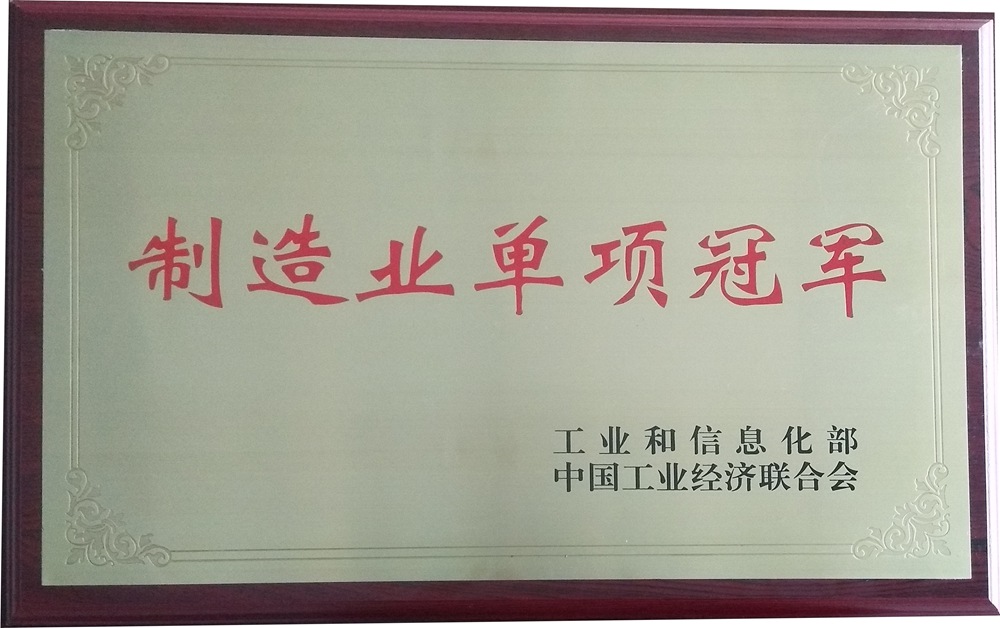 制造业单项冠军
工业和信息化部
中国工业经济联合会